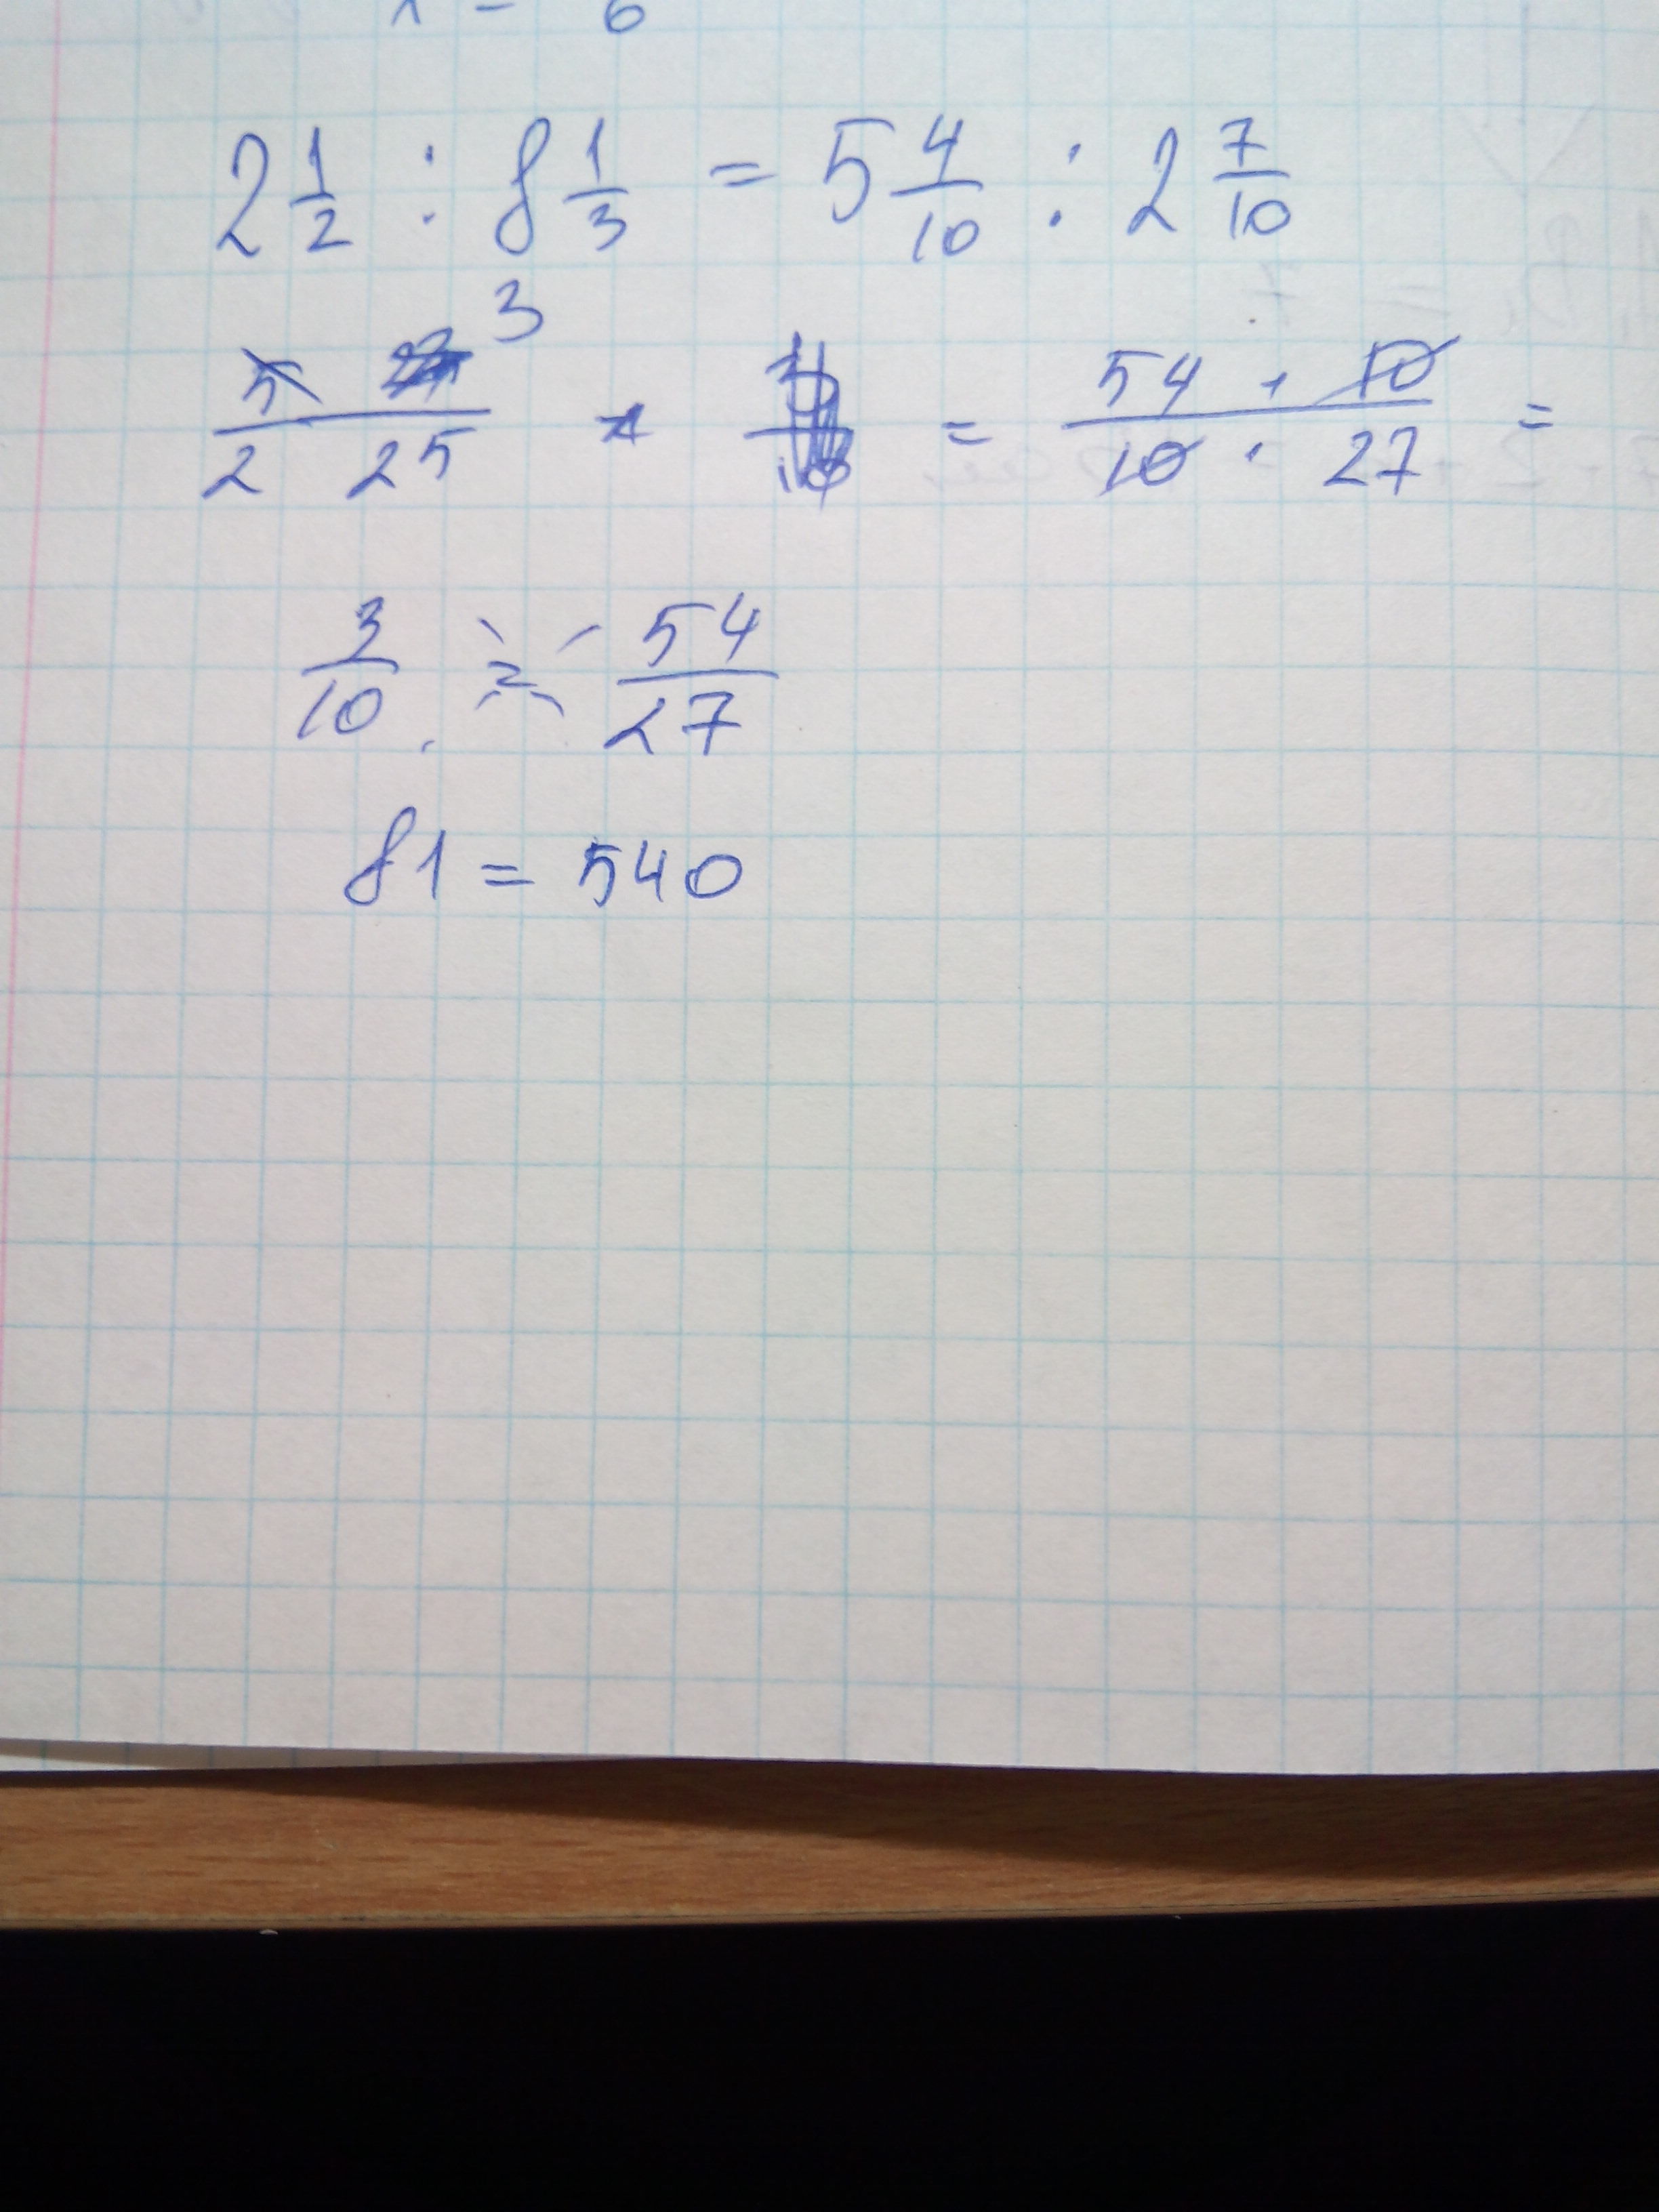 2 1/2 : 8 1/3 = 5 4/10 : 2 7/10
5 3 / 2 25 = 54 · 10 / 10 · 27 =
3/10 = 54/27
81 = 540